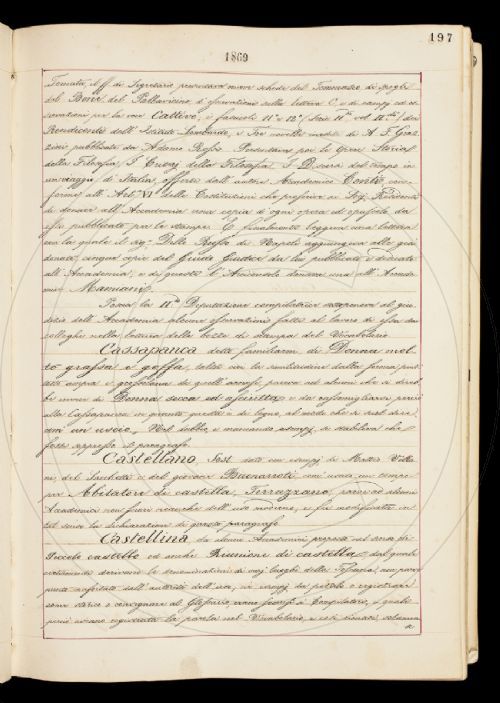 197
1869
Tornata, il ff. di Segretario presentava nuove schede del Tommaseo di spogli
del Berni, del Pallavicino, ed osservazioni sulla lettera C, e di esempj ed os-
servazioni per la voce Cattivo, i fascicoli 11° e 12° (Serie IIa vol.
Rendiconti dell' Istituto Lombardo, e Tre novelle inedite di A. F. Graz-
zini pubblicate da Adamo Rossi. Presentava poi le Opere Storia
della Filosofia, I Cuori della Filosofia, I Discorsi del tempo in
un viaggio d' Italia, offerte dall' autore Accademico Conti, con-
forme all' Art. VI delle Costituzioni che prescrive ai Sig. Residenti
di donare all' Accademia una copia di ogni opera od opuscolo da
essi pubblicato per le stampe. E finalmente leggeva una lettera
con la quale il sig. Della Russo di Napoli aggiungeva alle già
donate, cinque copie del Giusto Giudice da lui pubblicato e donate
all' Accademia, e di queste l' Arciconsolo donava una all' Accade-
mico Mamiani.
Poscia la IIa Deputazione compilatrice sottoponeva al giu-
dizio dell' Accademia alcune osservazioni fatte al lavoro di essa dai
colleghi nella lettura delle bozze di stampa del Vocabolario.
Cassapanca detta familiarm. di Donna mol-
to grassa e goffa, tolta via la similitudine dalla forma piut-
tosto ampia e grossolana di quelle arnesi, parve ad alcuni che si direb-
be invece di Donna secca ed asciutta, e da rassomigliarsi perciò
alla Cassapanca in quanto questa è di legno, al modo che si suol dire
con un uscio. Nel dubbio, e mancando esempj, fu stabilito che
fosse soppresso il paragrafo.
Castellano, Sost. dato con esempj di Matteo Villa-
ni, del Sacchetti e del giovane Buonarroti, come usato un tempo
per Abitatore di castella, Terrazzano, parve ad alcuni
Accademici non fuori neanche dell' uso moderno, e fu modificata in
tal senso la dichiarazione di questo paragrafo.
Castellina da alcuni Accademici proposta nel senso di
Piccolo castello ed anche Riunione di castella, dal quale
evidentemente derivano le denominazioni di varj luoghi della Toscana, non par-
ve
sono storico e consegnare al Glossario, erano scarsi i Compilatori, i quali
perciò avevano registrata la parola nel Vocabolario, e così rimase soltanto
a